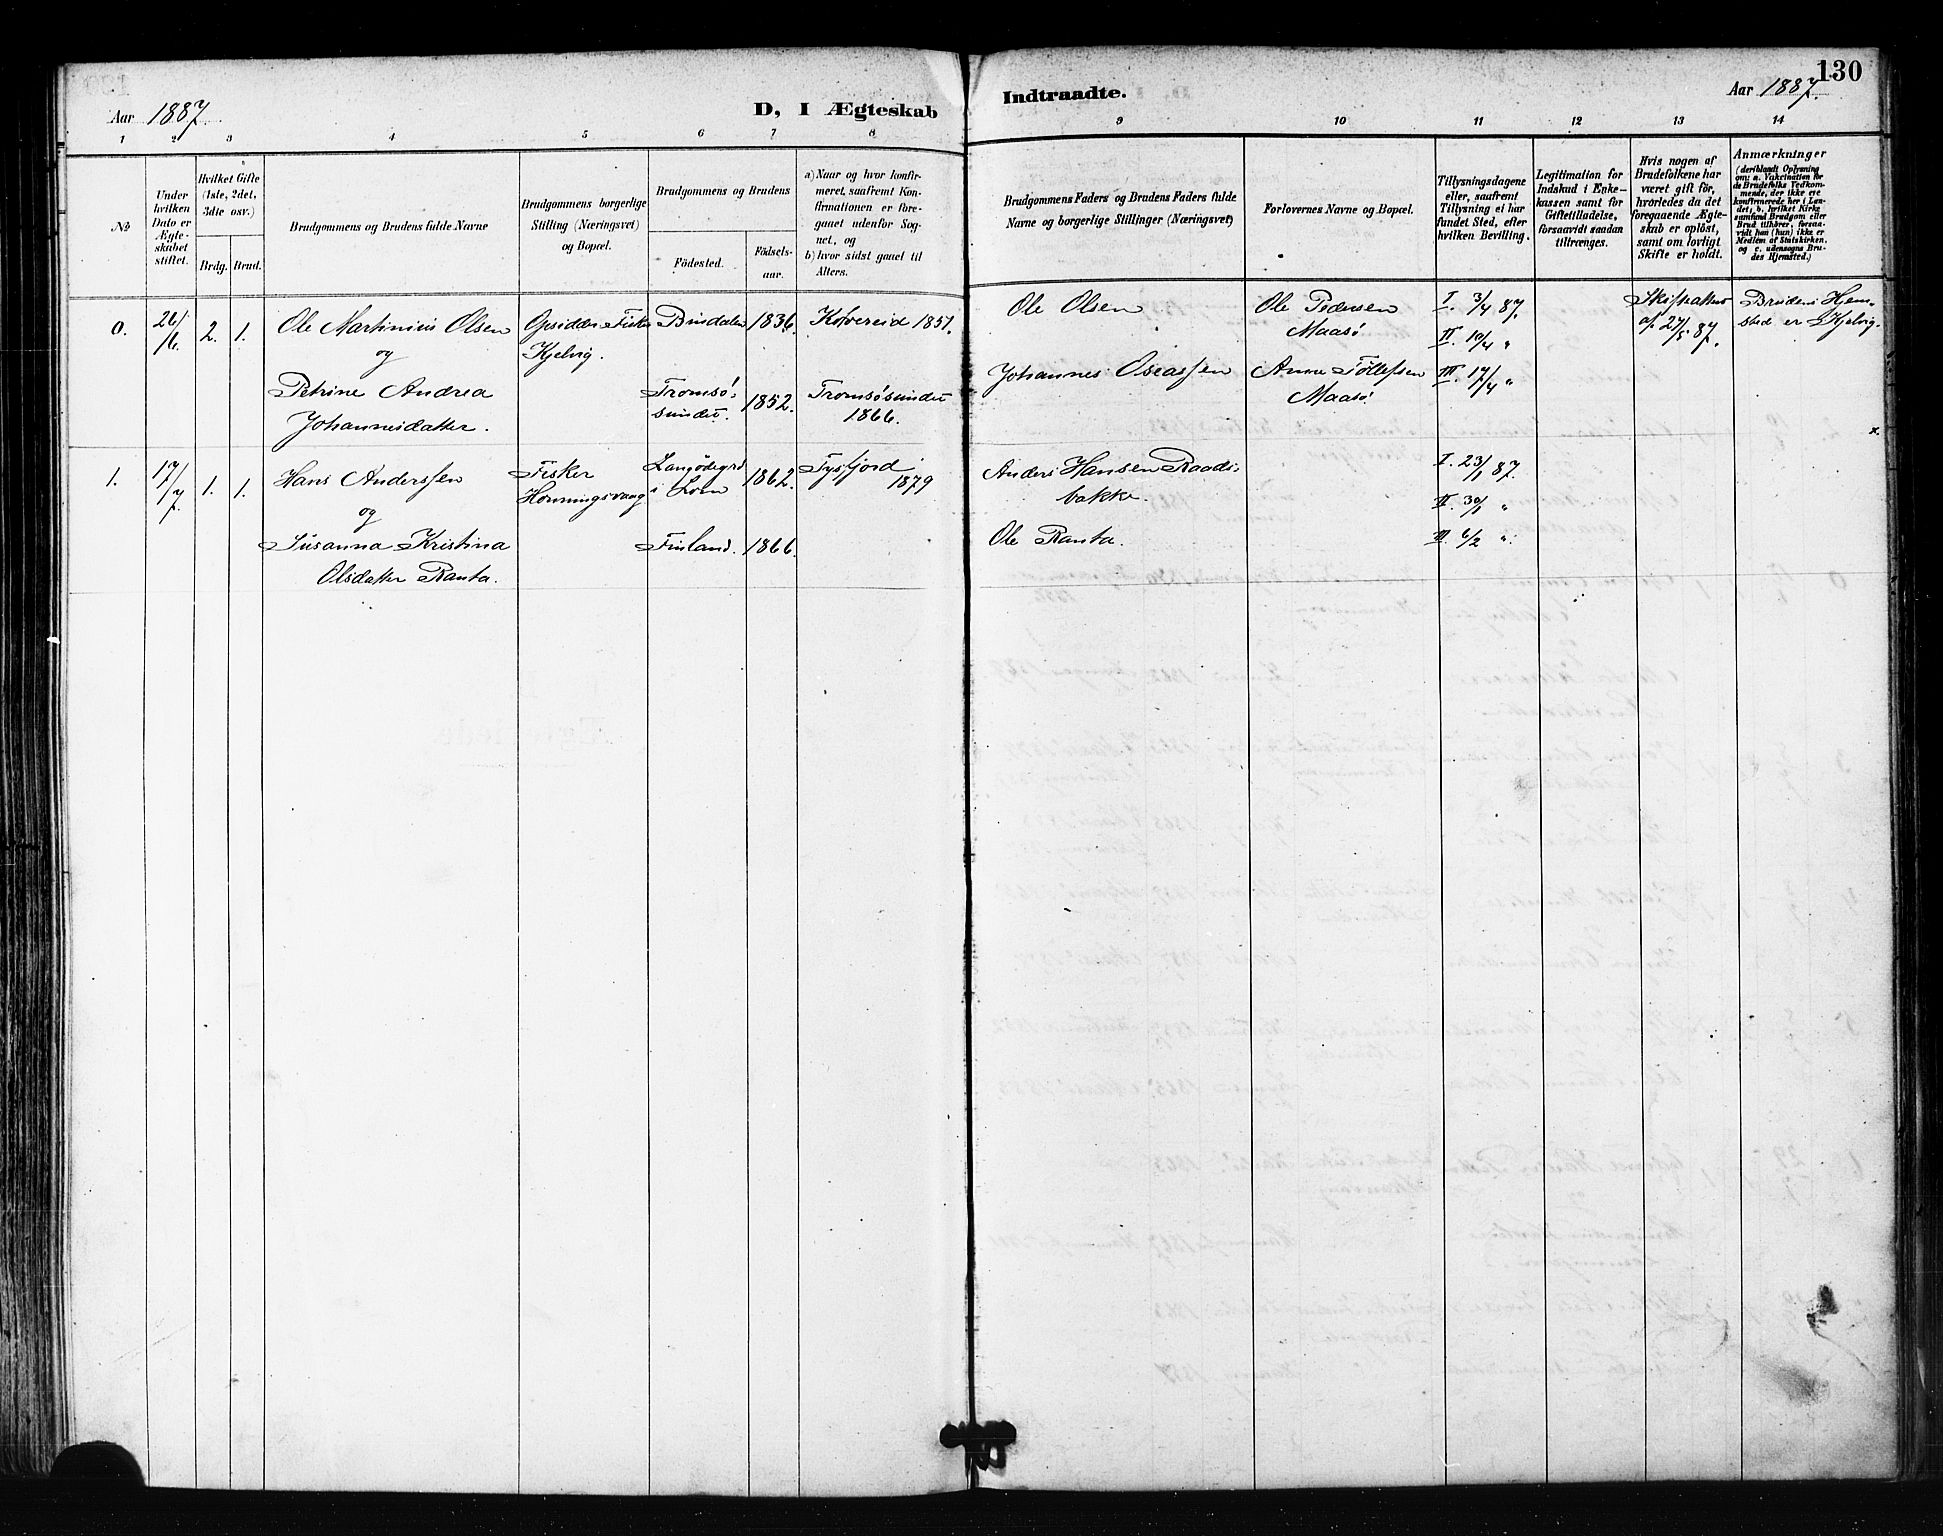 130
Aar 1887.
D, I Ægteskab
Indtraadte.
Aar 1887.
1 2 3 4 5 6 7 8
9 10 11 12 13 14
№
Under
hvilken
Dato er
Ægte-
skabet
stiftet.
Hvilket Gifte
(1ste, 2det,
3die osv.)
Brdg. Brud.
Brudgommens og Brudens fulde Navne
Brudgommens borgerlige
Stilling (Næringsvei)
og Bopæl.
Brudgommens og Brudens
Födested.
Födsels-
aar.
a) Naar og hvor konfir-
meret, saafremt Kon-
firmationen er fore-
gaaet udenfor Sog-
net, og
b) hvor sidst gaaet til
Alters.
Brudgommens Faders og Brudens Faders fulde
Navne og borgerlige Stillinger (Næringsvei)
Forlovernes Navne og Bopæl.
Tillysningsdagene
eller, saafremt
Tillysning ei har
fundet Sted, efter
hvilken Bevilling.
Legitimation for
Indskud i Enke-
kassen samt for
Giftetilladelse,
forsaavidt saadan
tiltrænges.
Hvis nogen af
Brudefolkene har
været gift för,
hvorledes da det
foregaaende Ægte-
skab er oplöst,
samt om lovligt
Skifte er holdt.
Anmærkninger
(deriblandt Oplysning
om: a. Vakcination for
de Brudefolks Vedkom-
mende, der ikke ere
konfirmerede her i Lan-
det; b. hvilket Kirke
samfund Brudgom eller
Brud tilhörer, forsaa-
vidt han (hun) ikke er
Medlem af Statskirken,
og c. udensogns Bru-
des Hjemsted.)
0. 26/6. 2. 1. Ole Martinius Olsen
og
Petrine Andrea
Johannesdatter.
Opsidder Fisker
Kjelvig.
Bindalen 1836. Kolvereid 1851.
Tromsö-
sundet. 1852. Tromsösundet
1866.
Ole Olsen
Johannes Oscassen
Ole Pedersen
Maasö
Anne Tollefsen
Maasö.
I. 3/4 87.
II. 10/4 "
III. 17/4 "
Skifteattest
af 27/5 87.
Brudens Hjem-
sted er Kjelvig.
1. 17/7. 1. 1. Hans Anderssen
og
Susanna Kristina
Olsdatter Ranta.
Fisker
Honningsvaag
i Lom 1862. Tysfjord
1879
Finland. 1866.
Anders Hansen Raads-
bakke.
Ole Ranta.
I. 23/1 87.
II. 30/1 "
III. 6/2 "